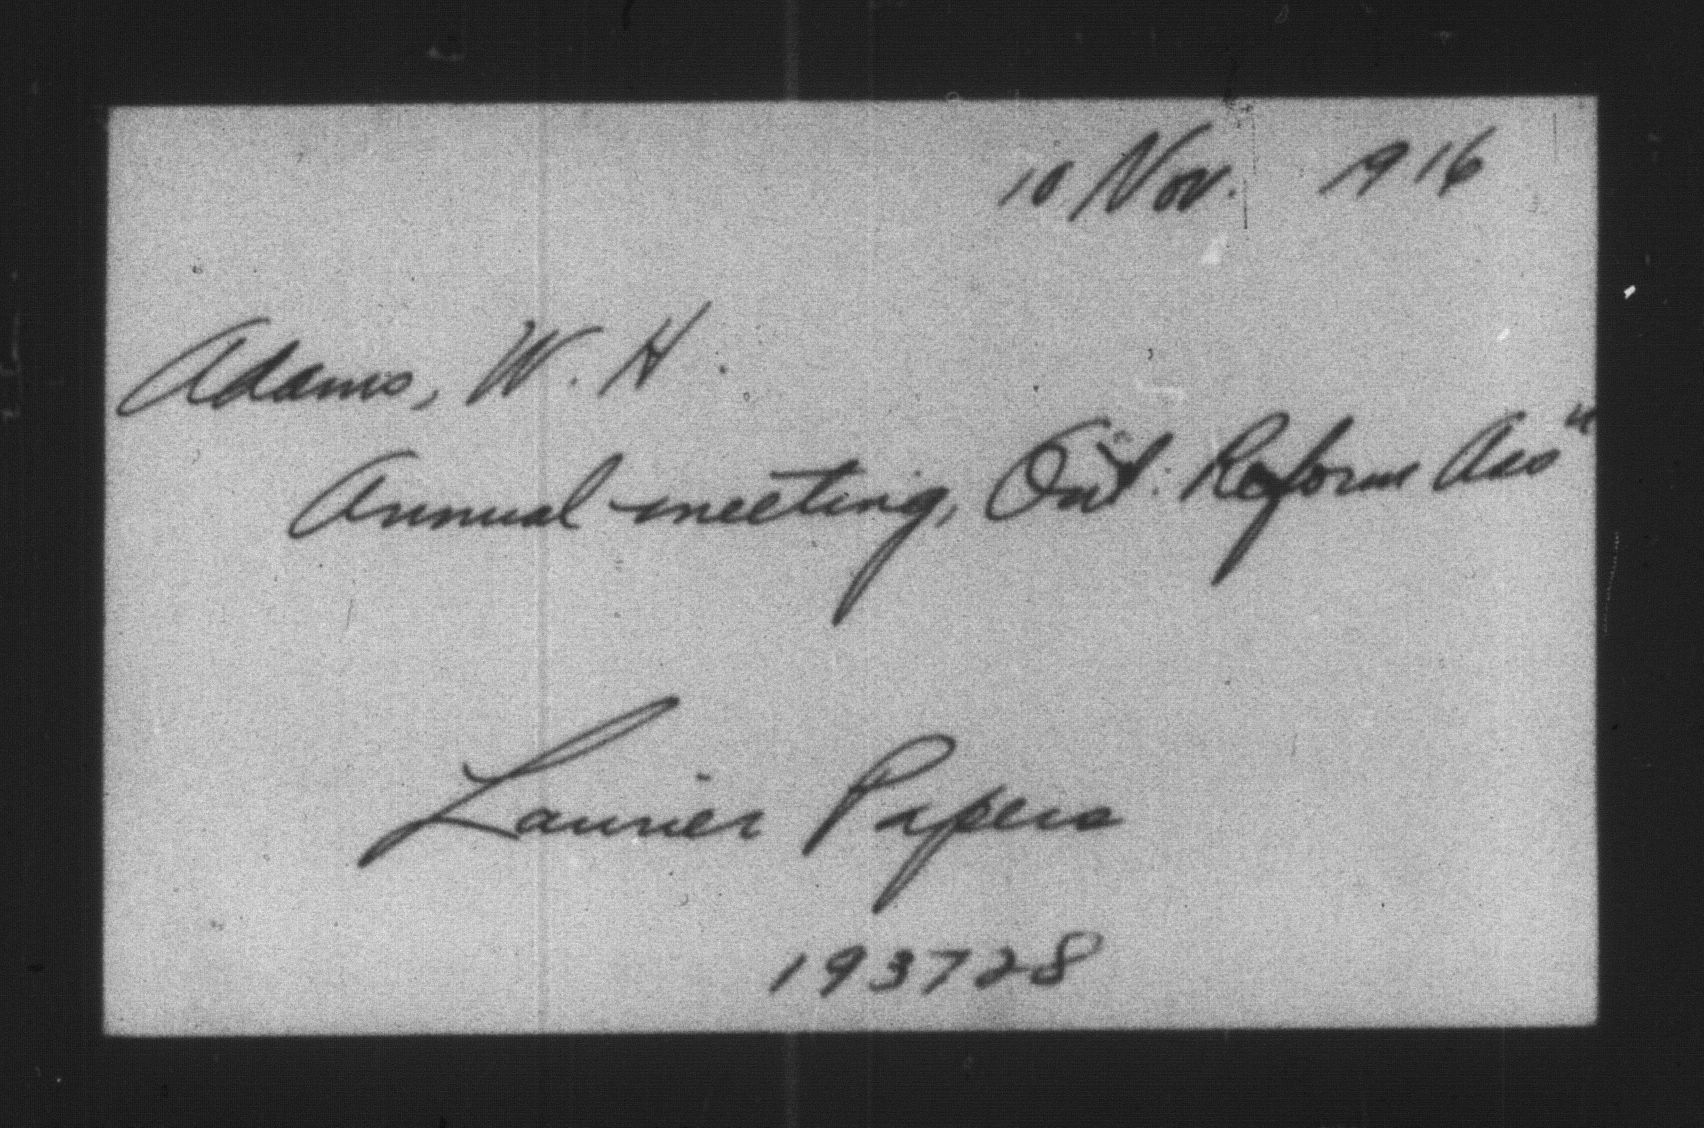 10 Nov. 1916
Adams, W. H.
Annual meeting, Ont. Reform Ass"
Laurier Papers
193728